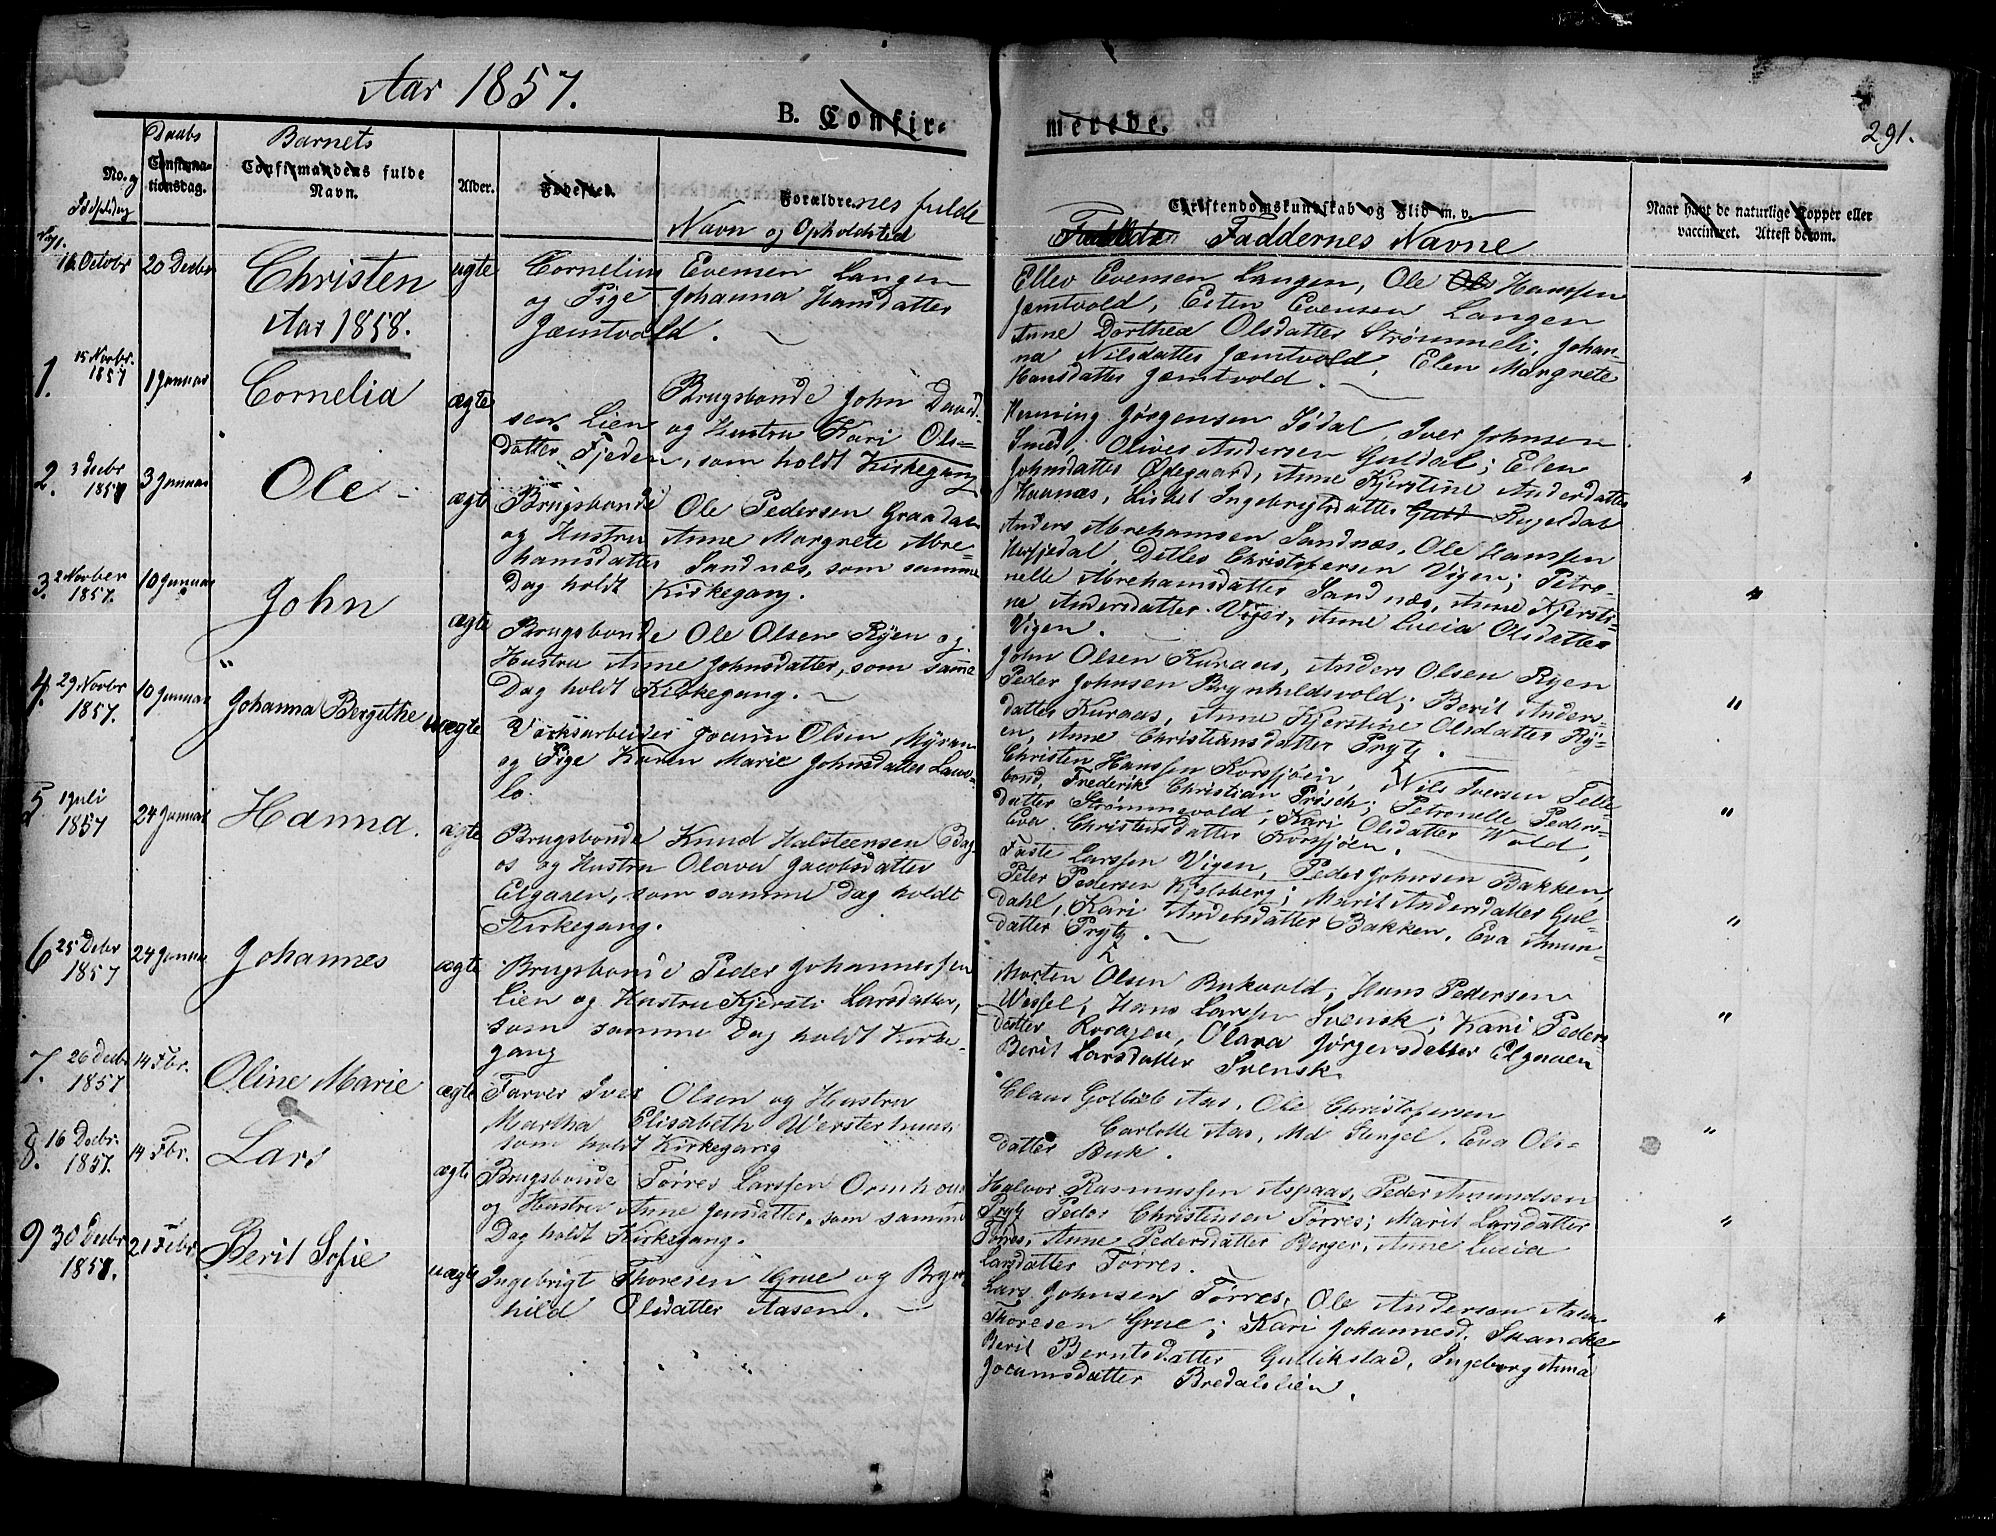 Aar 1857.
B. Confir-
merede.
291.
No. og Fødselsdag
Daabs
Confirma-
tionsdag.
Barnets
Confirmandens fulde
Navn.
Alder.
Fødested.
Forældrenes fulde
Navn og Opholdsted
Christendomskundskab og Flid m. v.
Faddernes Navne
Naar havt de naturlige Kopper eller
vaccineret. Attest derom.
16 Octobr
20 Decbr
Christen
uægte
Cornelius Evensen Langen
og Pige Johanna Hansdatter
Jæmtvold.
Ellev Evensen Langen, Ole Ols Hanssen
Jæmtvold, Esten Evensen Langen
Anne Dorthea Olsdatter Strømmeli, Johan-
na Nilsdatter Jæmtvold, Elen Margrete
Hansdatter Jæmtvold.
Aar 1858.
1.
15 Novbr.
1857
1 Januar
Cornelia
ægte
Brugsbonde John David-
sen Lien og Hustru Kari Ols-
datter Fjeden, som holdt Kirkegang
Henning Jørgensen Sødal, Iver Johnsen
Smed, Oliver Andersen Guldal; Elen
Johnsdatter Ødegaard, Anne Kjerstine Andersdatter
Havnæs, Lisbet Ingebrigtsdatter Guld Rugeldal
2.
3 Decbr
1857
3 Januar
Ole
ægte
Brugsbonde Ole Pedersen Graadal
og Hustru Anne Margrete Abre-
hamsdatter Sandnæs, som samme
Dag holdt Kirkegang.
Anders Abrehamsen Sandnæs, Ole Hanssen
Herjedal, Ditlef Christofersen Vigen; Petro-
nelle Abrehamsdatter Sandnæs, Anne Kjersti-
ne Andersdatter Anne Lucia Olsdatter
Vigen.
3.
2 Novber
1857.
10 Januar
John
ægte
Brugsbonde Ole Olsen Ryen og
Hustru Anne Johnsdatter, som samme
Dag holdt Kirkegang.
John Olsen Kuraas, Anders Olsen Ryen
Peder Johnsen Brynhildsvold; Berit Anders-
datter Kuraas, Anne Kjerstine Olsdatter Ry-
en, Anne Christiansdatter Prytz.
4.
29 Novbr
1857.
10 Januar
Johanna Bergithe
uægte
Værksarbeider Jocum Olsen Myran
og Pige Karen Marie Johnsdatter
Christen Hanssen Korssjøen, Nils Iversen Telle-
bond, Frederik Christian Prøsch; Petronelle Peders-
datter Strømmevold, Kari Olsdatter Wold,
Eva Christensdatter Korssjøen.
5
1 Juli
1857
24 Januar
Hanna.
ægte
Brugsbonde Knud Halsteensen Bag-
os og Hustru Olava Jacobsdatter
Elgaaen, som samme Dag holdt
Kirkegang.
Faste Larssen Vigen, Peder Johnsen Bakken,
Peter Pedersen Kjelsberg; Marit Andersdatter Gul-
dahl, Kari Andersdatter Bakken, Eva Amun-
datter Prytz.
6
25 Decbr
1857
24 Januar
Johannes
ægte
Brugsbonde Peder Johannessen
Lien og Hustru Kjersti Larsdatter,
som samme Dag holdt Kirke-
gang
Morten Olsen Bukvold, Hans Pedersen
Wessel, Hans Larssen Svensk; Kari Peders-
datter Olava Jørgensdatter Elgaaen
Berit Larsdatter Svensk
7.
26 Decbr
1857
14 Fbr.
Oline Marie
ægte
Farver Iver Olsen og Hustru
Martha Elisabeth Westerhuus
som holdt Kirkegang
Claus Gotlieb Aas, Ole Christofersen
Carlotte Aas, Md Stengel, Eva Ols-
datter Buk.
8.
16 Decbr.
1857.
14 Fbr.
Lars
ægte
Brugsbonde Tørres Larssen Ormhaug
og Hustru Anne Jensdatter, som samme
Dag holdt Kirkegang.
Halvor Rasmussen Aspaas, Peder Amundsen
Prytz Peder Christensen Tørres; Marit Larsdatter
Tørres, Anne Pedersdatter Berger, Anne Lucia
Larsdatter Tørres.
9
30 Decbr
1857.
21 Febr.
Berit Sofie
uægte
Ingebrigt Thoresen Grue og Bryn-
hild Olsdatter Aasen.
Lars Johnsen Tørres, Ole Andersen Aasen
Thoresen Grue; Kari Johannesd. Skancke
Berit Berntsdatter Gullikstad, Ingeborg Anna
Jocumsdatter Bredalslien.